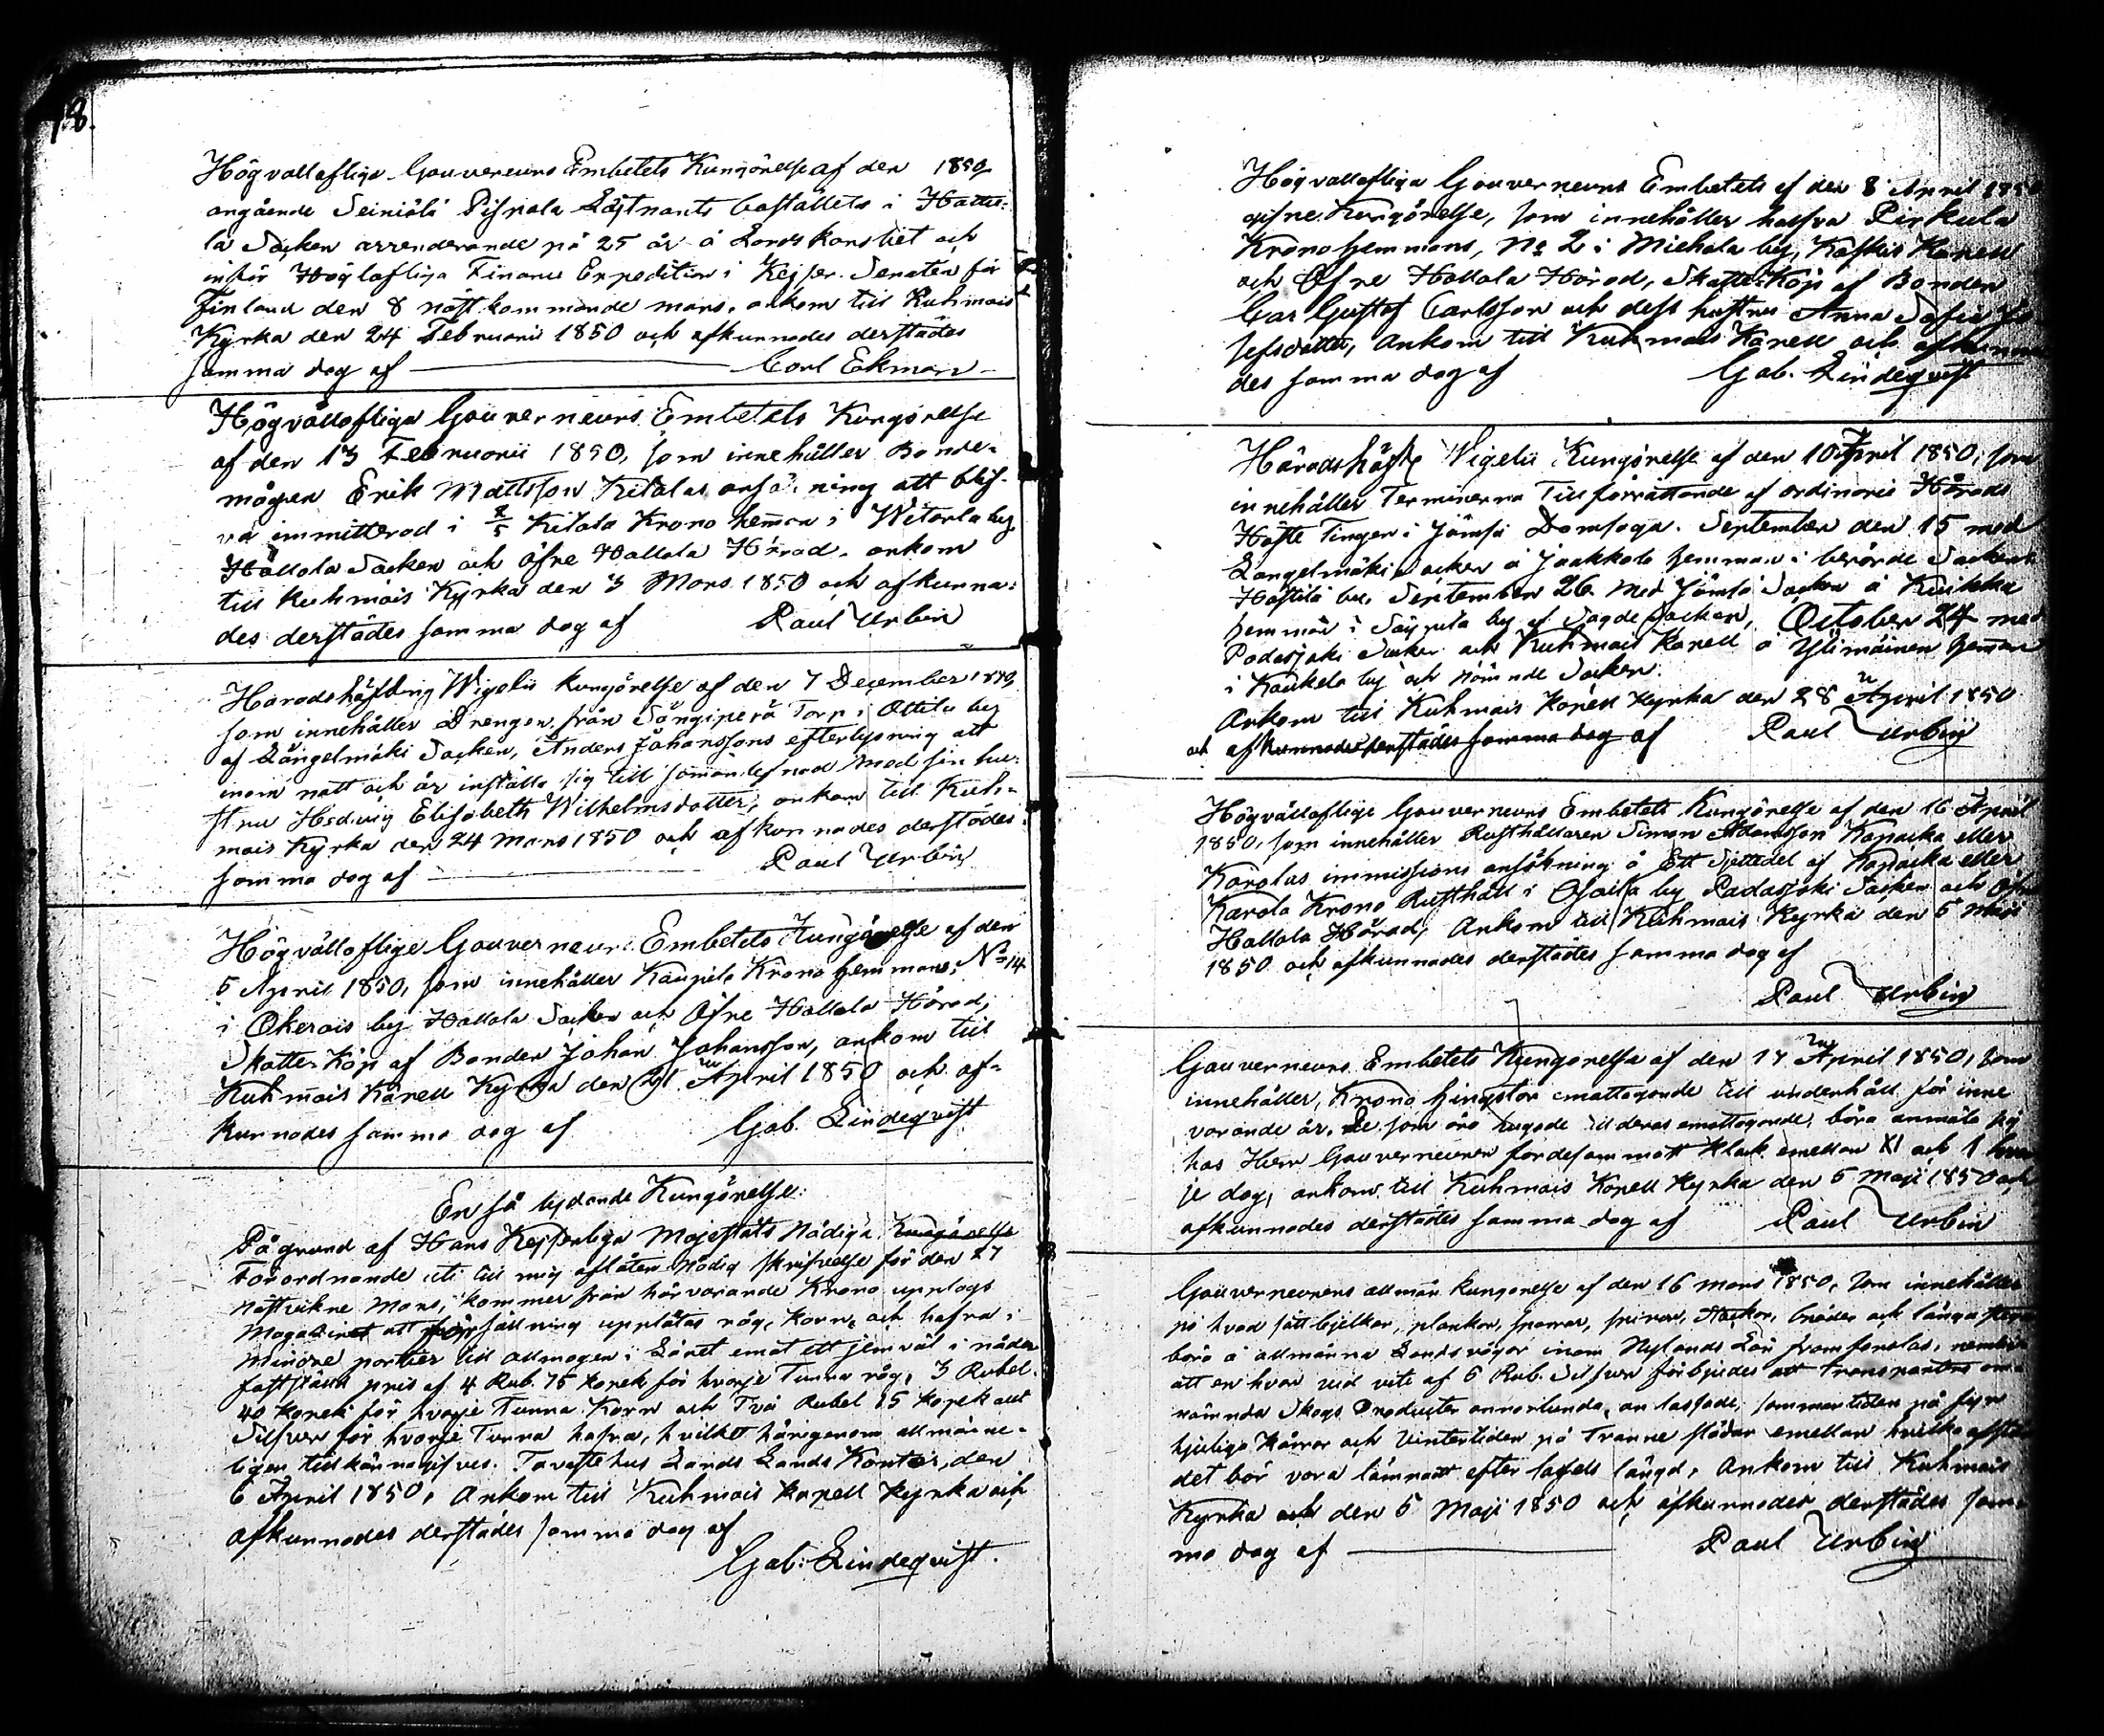 18.
Högvällofliga Gouverneurs Embetets Kungörelse af den 1850
angående Seiniälä Pispala Löjtnants boställets i Hattu-
la Socken arrenderande på 25 år å Lands Kansliet och
inför Höglofliga Finance Expedition i Kejser. Senaten för
Finland den 8 näst kommande mars. ankom till Kuhmois
Kyrka den 24 Februarii 1850 och afkunnades derstädes
samma dag af Carl Ekman
Högvällofliga Gouverneurs Embetets Kungörelse
af den 13 Februarii 1850, som innehåller Bonde-
mågen Erik Mattsson Kitalas ansökning att blif-
va immitterad i Kitala Krono hemman i Witorla by
Hållola Socken och öfre Hollola Härad. ankom
till Kuhmois Kyrka den 3 Mars 1850 och afkunna-
des derstädes samma dag af Paul Urbin
Häradshöfding Wigelii kungörelse af den 7 December 1849,
som innehåller Drengen från Sångiperä Torp i Attila by
af Längelmäki Socken, Anders Johanssons efterlysning att
inom natt och år inställa sig till sammanlefnad med sin hu-
stru Hedvig Elisabeth Wilhelmsdotter, ankom till Kuh-
mois Kyrka den 24 Mars 1850 och afkunnades derstädes
samma dag af Paul Urbin
Högvälloflige Gouverneurs Embetets Kungörelse af den
5 April 1850, som innehåller Kaupila Krono hemmans, No 14
i Okerois by Hollola Socken och Öfre Hollola Härad,
Skatte-Köp af Bonden Johan Johansson, ankom till
Kuhmois Kapell Kyrka den 21 April 1850 och af-
kunnades samma dag af Gab. Lindeqvist
En så lydande Kungörelse:
På grund af Hans Kejserliga Majestäts Nådiga Kungörelse
Förordnande uti till mig aflåten Nådig skrifvelse för den 27
nästvikne Mars, kommer från härvarande Krono upplags
Magazinet att försäljning upplåtas råg, korn, och hafra i
mindre partier till allmogen i Länet emot ett jemväl i nåder
fastställt pris af 4 Rub. 75 kopek för hvarje Tunna råg, 3 Rubel
40 kopek för hvarje Tunna Korn och Två Rubel 25 kopek allt
Silfver för hvarje Tunna hafra, hvilket härigenom allmänne-
ligen tillkännagifves. Tavastehus Lands Lands Kontor, den
6 April 1850, Ankom till Kuhmois kapell Kyrka och
afkunnades derstädes samma dag af
Gab. Lindeqvist.
Högvällofliga Gouverneurs Embetets af den 8 April 1850
gifne Kungörelse, som innehåller halfva Pirkula
Krono hemmans, No 2 i Michola by, Koskis Kapell
och Öfre Hollola Härad, Skatte-Köp af Bonden
Carl Gustaf Carlsson och dess hustru Anna Sofia Jo-
sefsdotter, Ankom till Kuhmois Kapell och afkunna-
des samma dag af Gab. Lindeqvist
Häradshöfd. Wigelii Kungörelse af den 10 April 1850, som
innehåller Terminerna Till förrättande af ordinarie Härads
Höste Tingen i Jämsä Domsaga. September den 15 med
Längelmäki Socken å Jaakkola hemman i berörde Sockens
Hästilä by, September 26 Med Jämsä Socken å Kuikka
hemman i Säyrilä by af Sagde Socken, October 24 med
Padasjoki Socken och Kuhmois Kapell å Ylimäinen hemman
i Kaukela by och nämnde Socken.
Ankom till Kuhmois Kapell Kyrka den 28 April 1850
och afkunnades derstädes samma dag af Paul Urbin
Högvälloflige Gouverneurs Embetets Kungörelse af den 16 April
1850, som innehåller Rusthållaren Simon Adamsson Kapakka eller
Karolas immissions ansökning å Ett Sjettedel af Kapakka eller
Karola Krono Rusthåll i Osoila by Padasjoki Socken och Öfre
Hollola Härad, Ankom till Kuhmois Kyrka den 5 Maji
1850 och afkunnades derstädes samma dag af
Paul Urbin
Gouverneurs Embetets Kungörelse af den 17 April 1850, som
innehåller, Krono hingstar emottagande till underhåll för inne
varande år, De som äro hugade till deras emottagande, böra anmäla sig
hos Herr Gouverneuren fördesammast klock emellan XI och 1 hvar
je dag, ankom till Kuhmois Kapell Kyrka den 5 Maji 1850 och
afkunnades derstädes samma dag af Paul Urbin
Gouverneurens allmän kungörelse af den 16 mars 1850, Som innehåller
på hvad sätt bjelkar, plankor, sparrar, spiror, Stockar, bräder och långa
böra å allmänna Landsvägar inom Nylands Län framforslas, nemlig
att en hvar vid vite af 6 Rub. Silfver förbjudes att transportera om-
nämnda Skogs Producter annorlunda, än lassade, sommartiden på fyr
hjuliga kärror och Vintertiden på Tvänne slädar emellan hvilka afstån
det bör vara lämnadt efter lassets längd, Ankom till Kuhmois
Kyrka och den 5 Maji 1850 och afkunnades derstädes sam-
ma dag af Paul Urbin